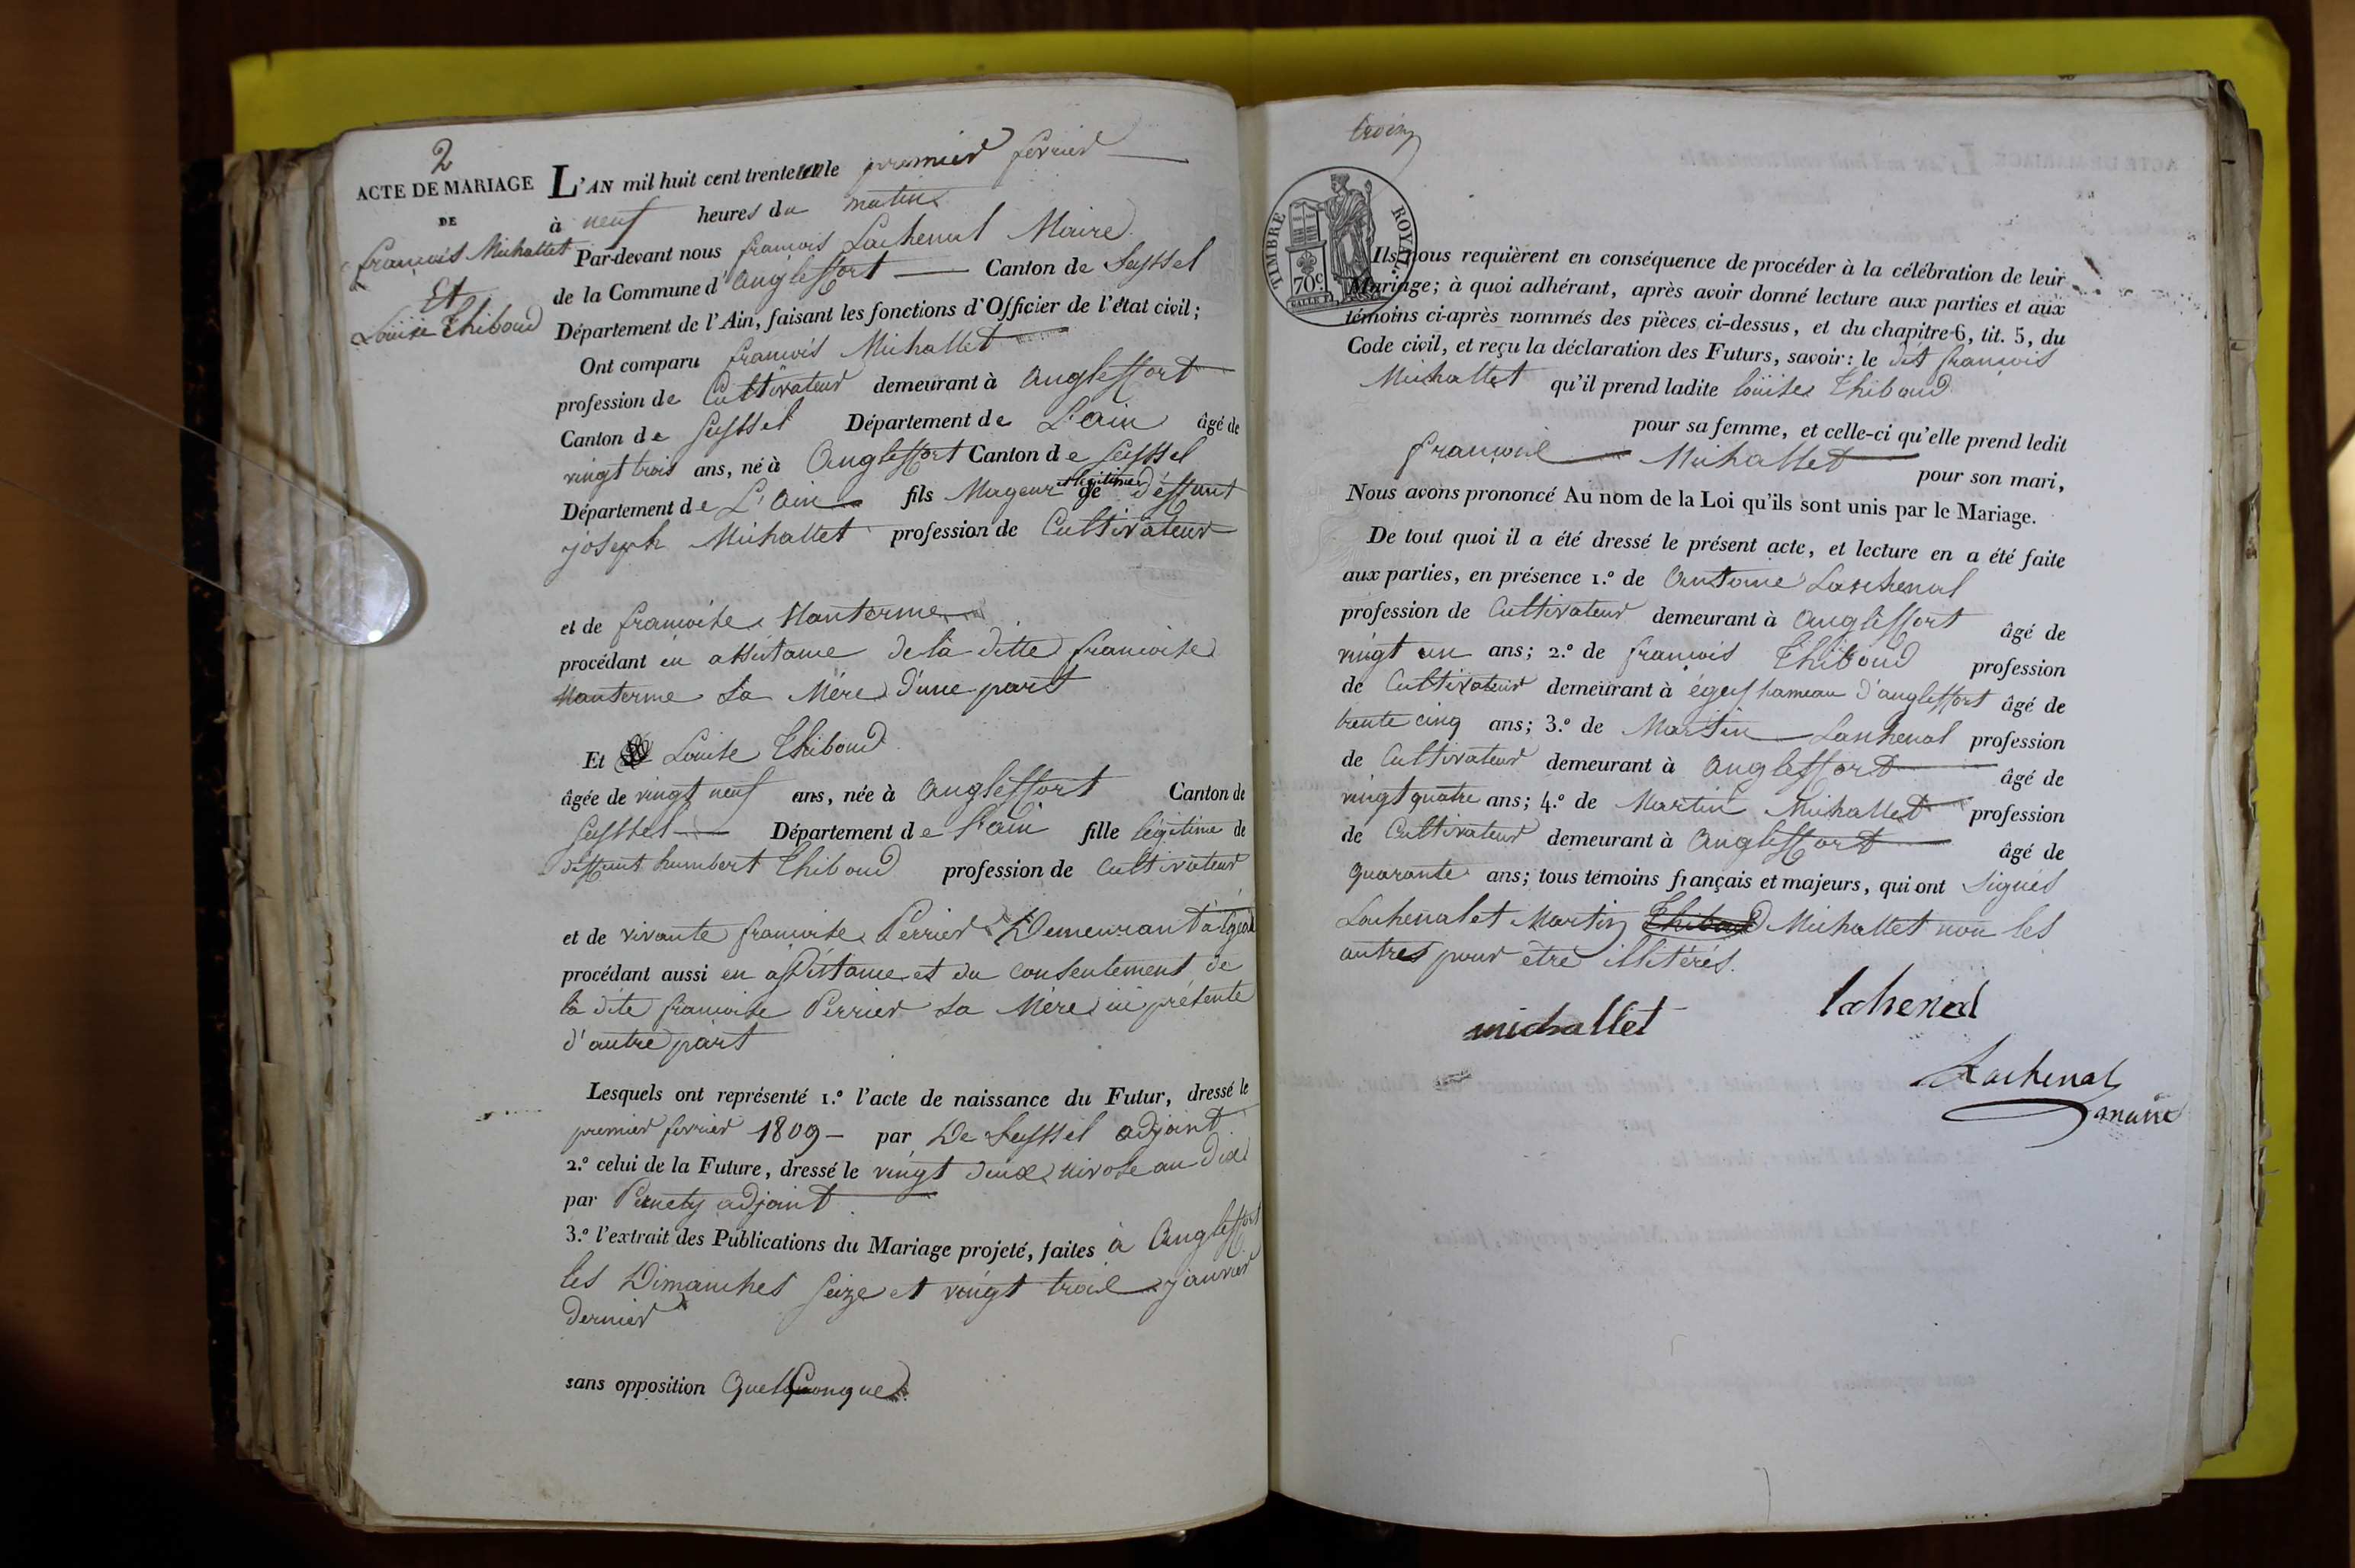 2
ACTE DE MARIAGE
DE
francois Michallet
Et
Louise Thiboud
L'AN mil huit cent trente un le premier fevrier
à neuf heures du matin
Par-devant nous francois Lachenal Maire
de la Commune d'angleffort Canton de Seyssel
Département de l'Ain, faisant les fonctions d'Officier de l'état civil;
Ont comparu francois Michallet
profession de Cultivateur demeurant à angleffort
Canton de Seyssel Département de L'ain âgé de
vingt trois ans, né à angleffort Canton de Seyssel
Département de L'ain fils Mageur et légitime de deffunt
joseph Michallet profession de Cultivateur
et de francoise Manterme
procédant en assistance de la ditte francoise
Manterme sa Mére d'une part
Et Louise Thiboud
âgée de vingt neuf ans, née à angleffort Canton de
Seyssel Département de l'ain fille légitime de
deffunt humbert Thiboud profession de Cultivateur
et de vivante francoise Perrier Demeurant à
procédant aussi en assistance et du consentement de
la dite francoise Perrier sa Mère ici présente
d'autre part
Lesquels ont représenté 1.º l'acte de naissance du Futur, dressé le
premier fevrier 1809 - par De Seyssel adjoint
2.º celui de la Future, dressé le vingt deux nivose an dix
par adjoint
3.º l'extrait des Publications du Mariage projeté, faites à angleffort
les Dimanches seize et vingt trois janvier
dernier
sans opposition Quelquonque
trois
TIMBRE ROYAL
70c
Ils nous requièrent en conséquence de procéder à la célébration de leur
Mariage; à quoi adhérant, après avoir donné lecture aux parties et aux
témoins ci-après nommés des pièces ci-dessus, et du chapitre 6, tit. 5, du
Code civil, et reçu la déclaration des Futurs, savoir: le dit francois
Michallet qu'il prend ladite loüise Thiboud
pour sa femme, et celle-ci qu'elle prend ledit
francois Michallet pour son mari,
Nous avons prononcé Au nom de la Loi qu'ils sont unis par le Mariage.
De tout quoi il a été dressé le présent acte, et lecture en a été faite
aux parties, en présence 1.º de Antoine Lachenal
profession de Cultivateur demeurant à angleffort âgé de
vingt un ans; 2.º de francois Thiboud profession
de Cultivateur demeurant à hameau d'angleffort âgé de
trente cinq ans; 3.º de Martin Lachenal profession
de Cultivateur demeurant à angleffort âgé de
vingt quatre ans; 4.º de Martin Michallet profession
de Cultivateur demeurant à angleffort âgé de
quarante ans; tous témoins français et majeurs, qui ont signés
Lachenal et Martin Thiboud Michallet non les
autres pour être illitérés.
michallet lachenal
Lachenal
maire